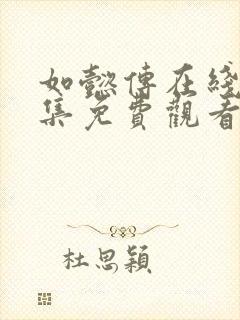 如懿傳在綫
集免費觀看
杜思穎